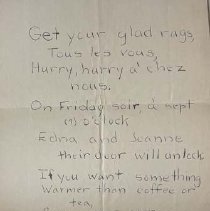 Get your glad rags,
Tous les vous,
Hurry, hurry a' chez
nous.
On Friday soir, a sept
(7) o'clock
Edna and Jeanne
their door will unlock.
If you want something
warmer than coffee or
tea,